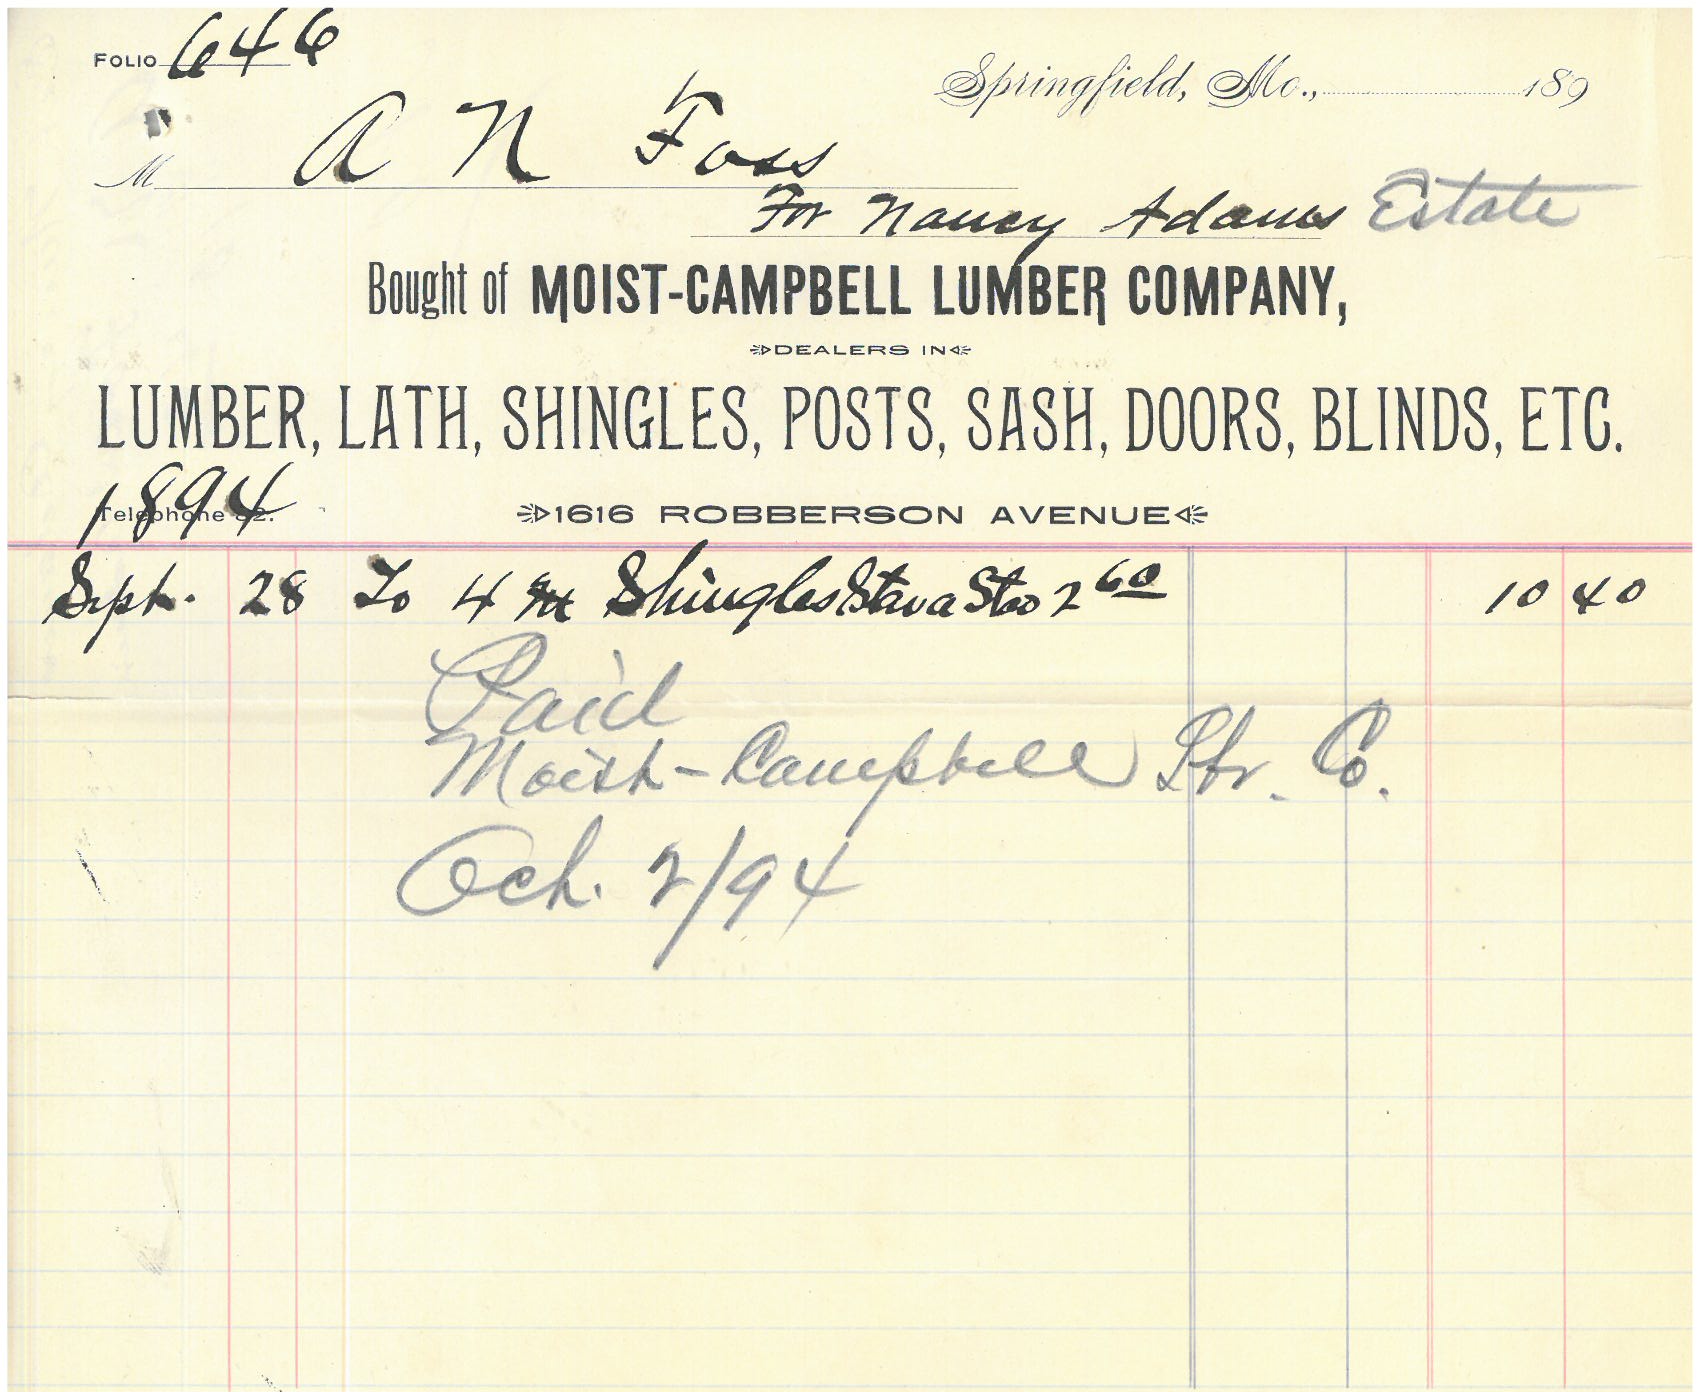 FOLIO 646
Springfield, Mo., 189
M A N Foss
For Nancy Adams Estate
Bought of MOIST-CAMPBELL LUMBER COMPANY,
DEALERS IN
LUMBER, LATH, SHINGLES, POSTS, SASH, DOORS, BLINDS, ETC.
1894
Telephone 82.
1616 ROBBERSON AVENUE
Sept. 28 To 4 M Shingles 2 60 10 40
Paid
Moist-Campbell Lbr. Co.
Oct. 2/94